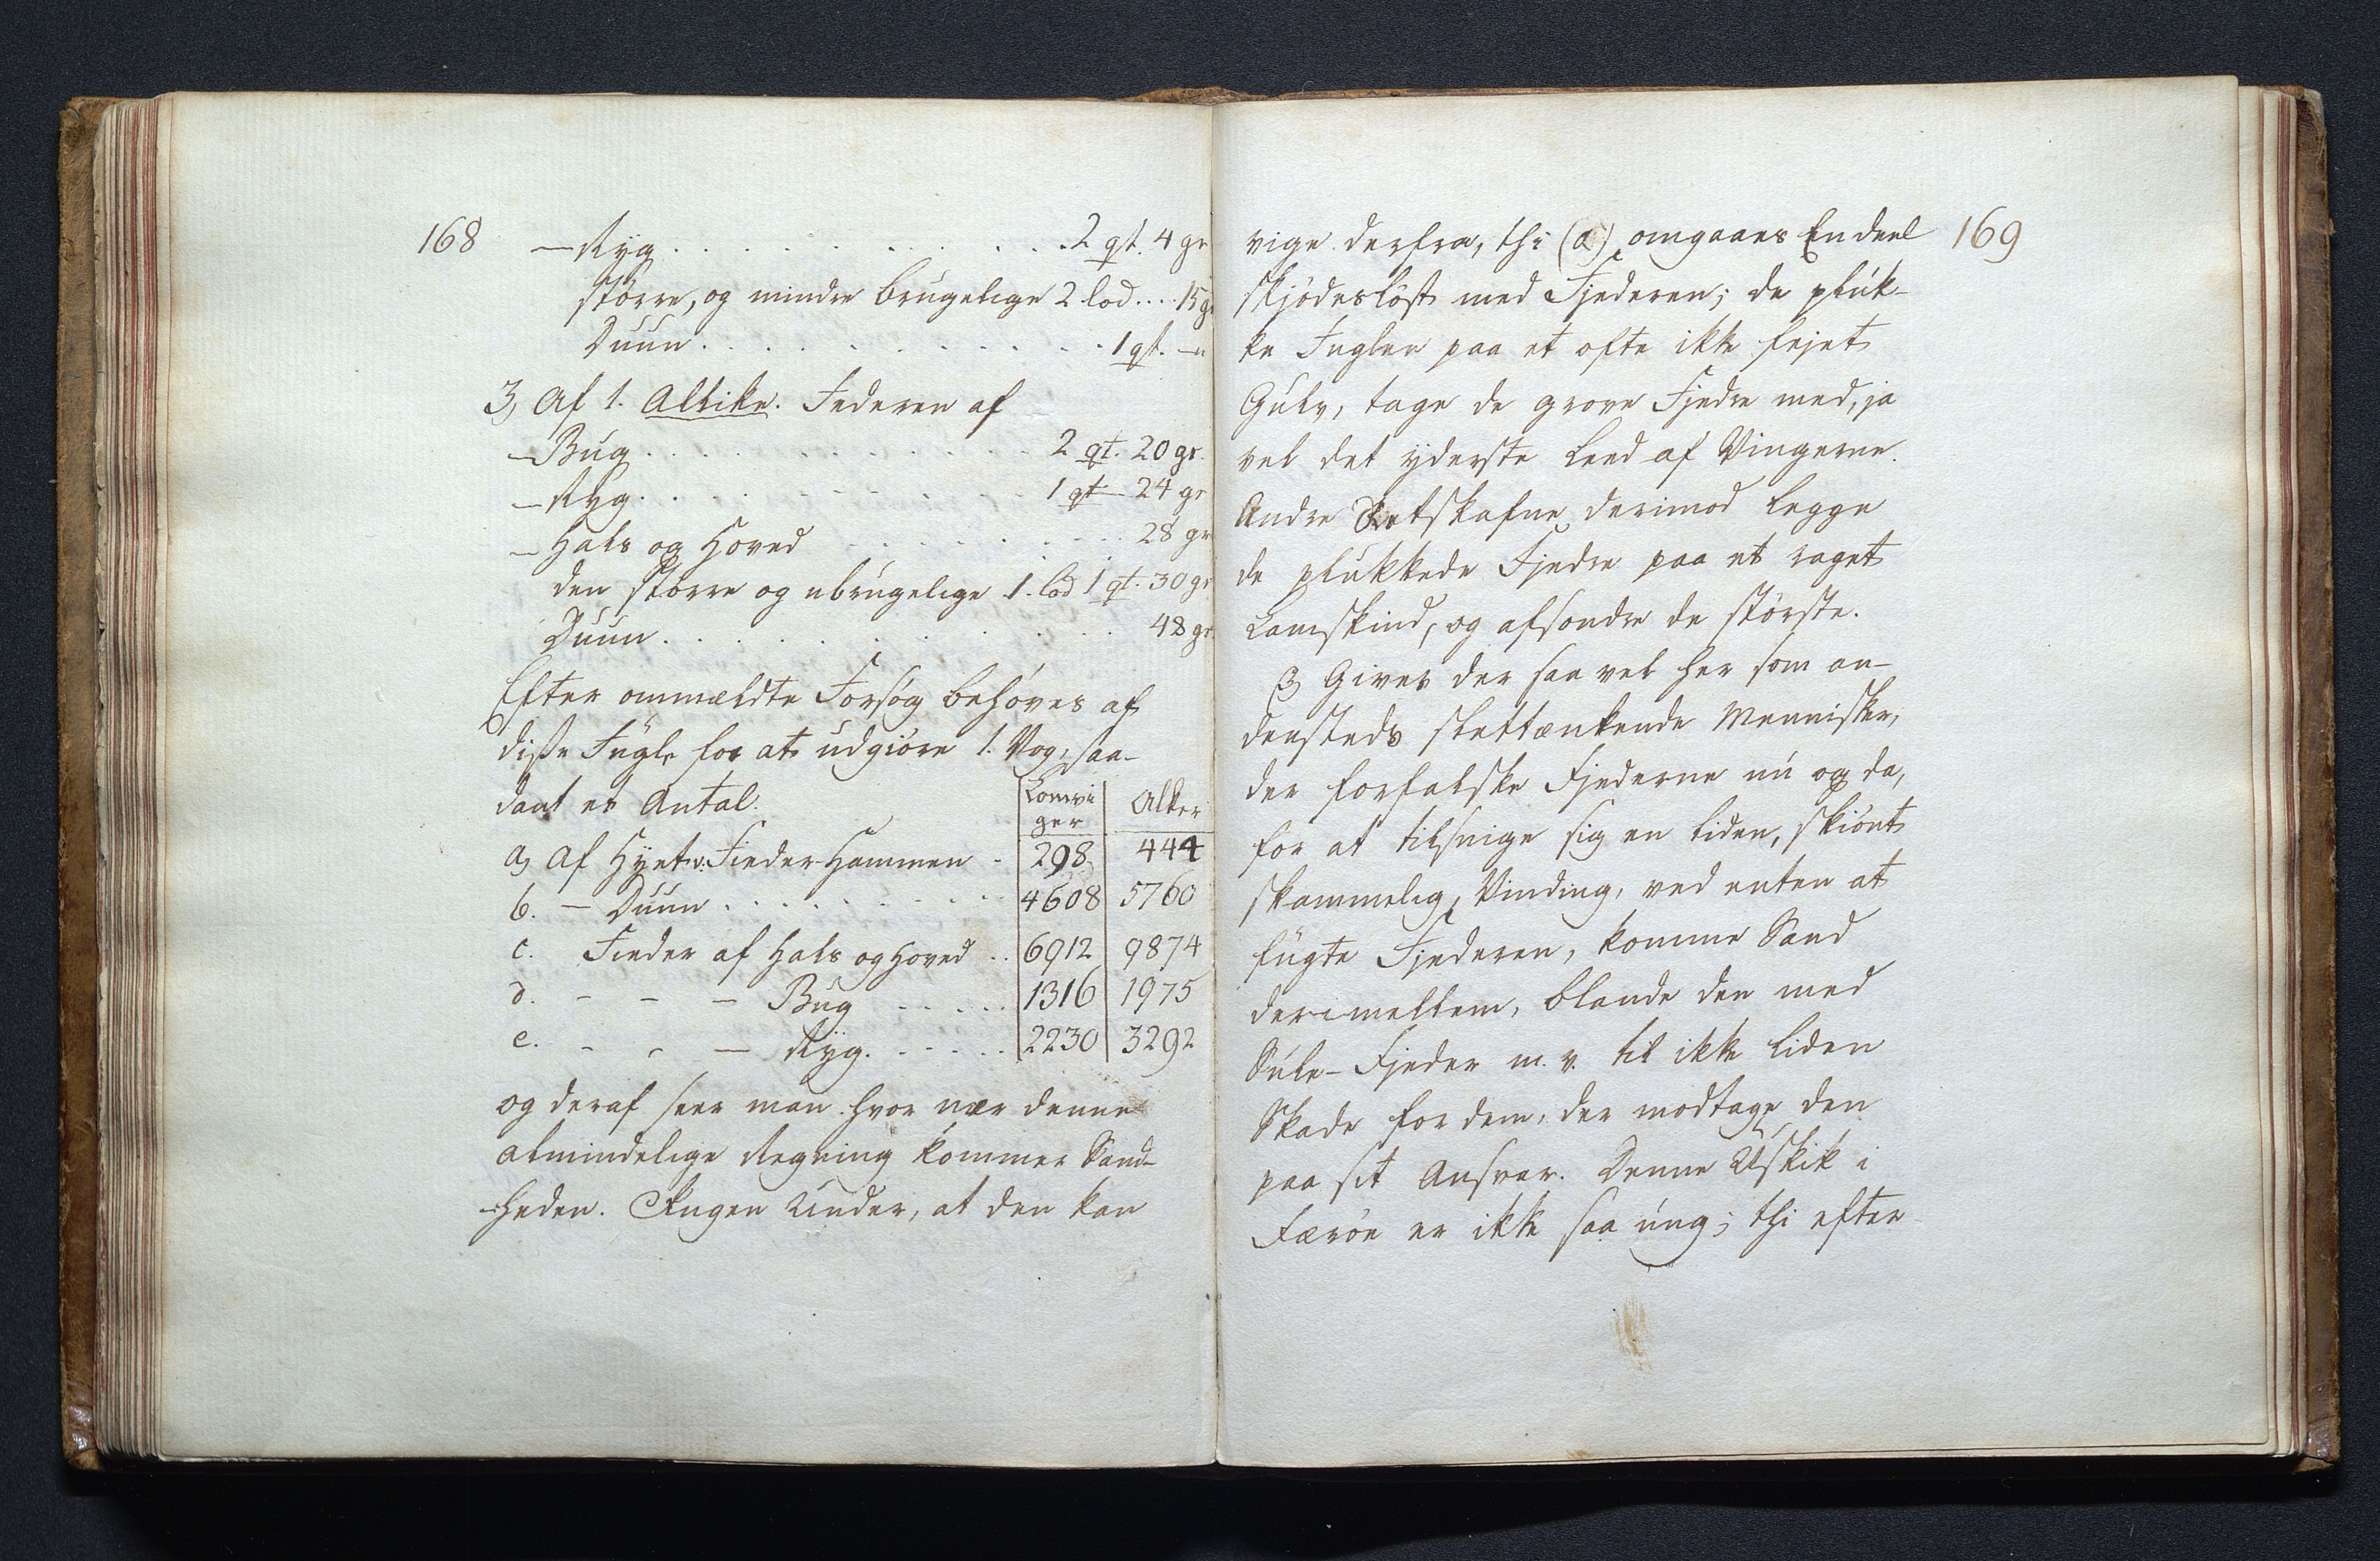 168
— Ryg . . . . . . . . . . . . . 2 qt. 4 gr
større, og mindre brugelige 2 lod .... 15 gr
Duun . . . . . . . . . . . . . 1 qt. —
3, Af 1. Alkike. Federen af
— Bug . . . . . . . . . . . . 2 qt. 20 gr.
— Ryg . . . . . . . . . . . . 1 qt — 24 gr
— Hals og Hoved . . . . . . . . . 28 gr
den større og ubrugelige 1. lod 1 qt. 30 gr
Duun . . . . . . . . . . . . 48 gr
Efter ommældte Forsøg behøves af
disse Fugle for at udgiøre 1. Vog, saa-
dant et Antal.
Lomvi Alker
ger
a, Af Hÿet Fieder-Hammen - 298 444
b. — Duun . . . . . . . . . 4608 5760
c. Fieder af Hals og Hoved . . 6912 9874
d. - - — Bug - - . . . 1316 1975
e. - - — Ryg. . . . . . 2230 3292
og deraf seer man hvor nær denne
almindelige Regning kommer Sand-
-heden. Ingen Under, at den kan
169
vige derfra, thi (a) omgaaes En deel
skjødesløst med Fjederen; de pluk-
ke Fuglen paa et ofte ikke fejet
Gulv, tage de grove Fjedre med, ja
vel det yderste Leed af Vingerne.
Andre Retskafne derimod legge
de plukkede Fjedre paa et raget
Lamskind, og afsondre de største.
β, Gives der saa vel her som an-
densteds slettænkende Mennisker,
der forfalske Fjederne nu og da,
for at tilsnige sig en liden, skiønt
skammelig, Vinding, ved enten at
fugte Fjederen, komme Sand
derimellem, blande den med
Sule-Fjeder m. v. til ikke liden
Skade for dem, der modtage den
paa sit Ansvar. Denne Uskik i
Færøe er ikke saa ung; thi efter